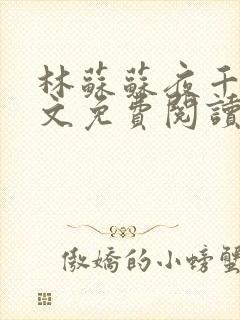 林蘇蘇夜千
文免費閱讀
傲嬌的小螃蟹